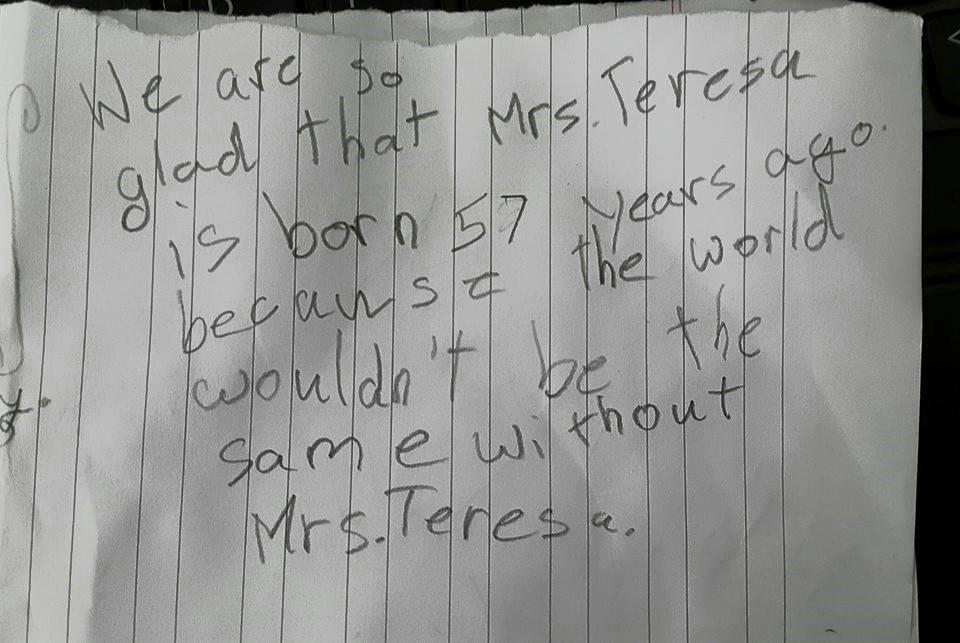 We are so
glad that Mrs. Teresa
is born 57 years ago.
because the world
wouldn't be the
same without
Mrs. Teresa.